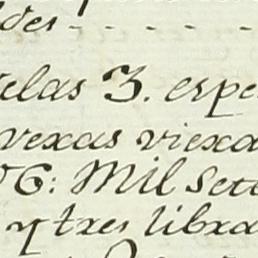 des - - - - -
elas 3. espe
vexas viexa
06: Mil sete
y tres libra